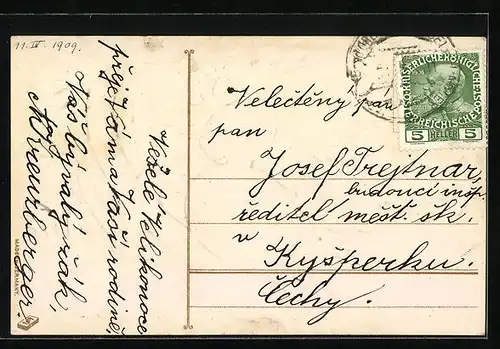 11. IV. 1909.
Veselé Velikonoce
přeje Vám a Vaší rodině,
Váš bývalý žák,
Kreuzberger.
MADE GERMANY.
KAISERLICHE KÖNIGLICHE
ÖSTERREICHISCHE
5 HELLER 5
Velectěný pan
pan
Josef Trejtnar,
budoucí insp.
ředitel měšť. šk.
v
Kyšperku.
Čechy.